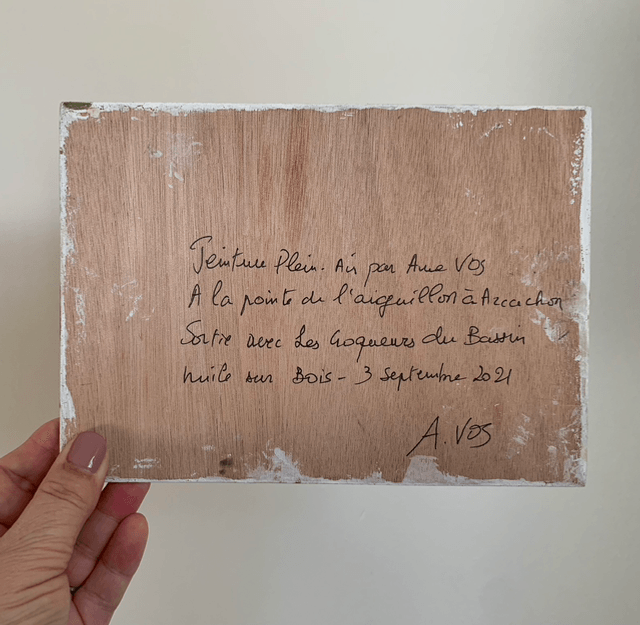 Peinture Plein. Air par Anne VOS
A la pointe de l'aiguillon à Arcachon
Sortie avec Les Croqueurs du Bassin
huile sur BOIS - 3 septembre 2021
A. VOS